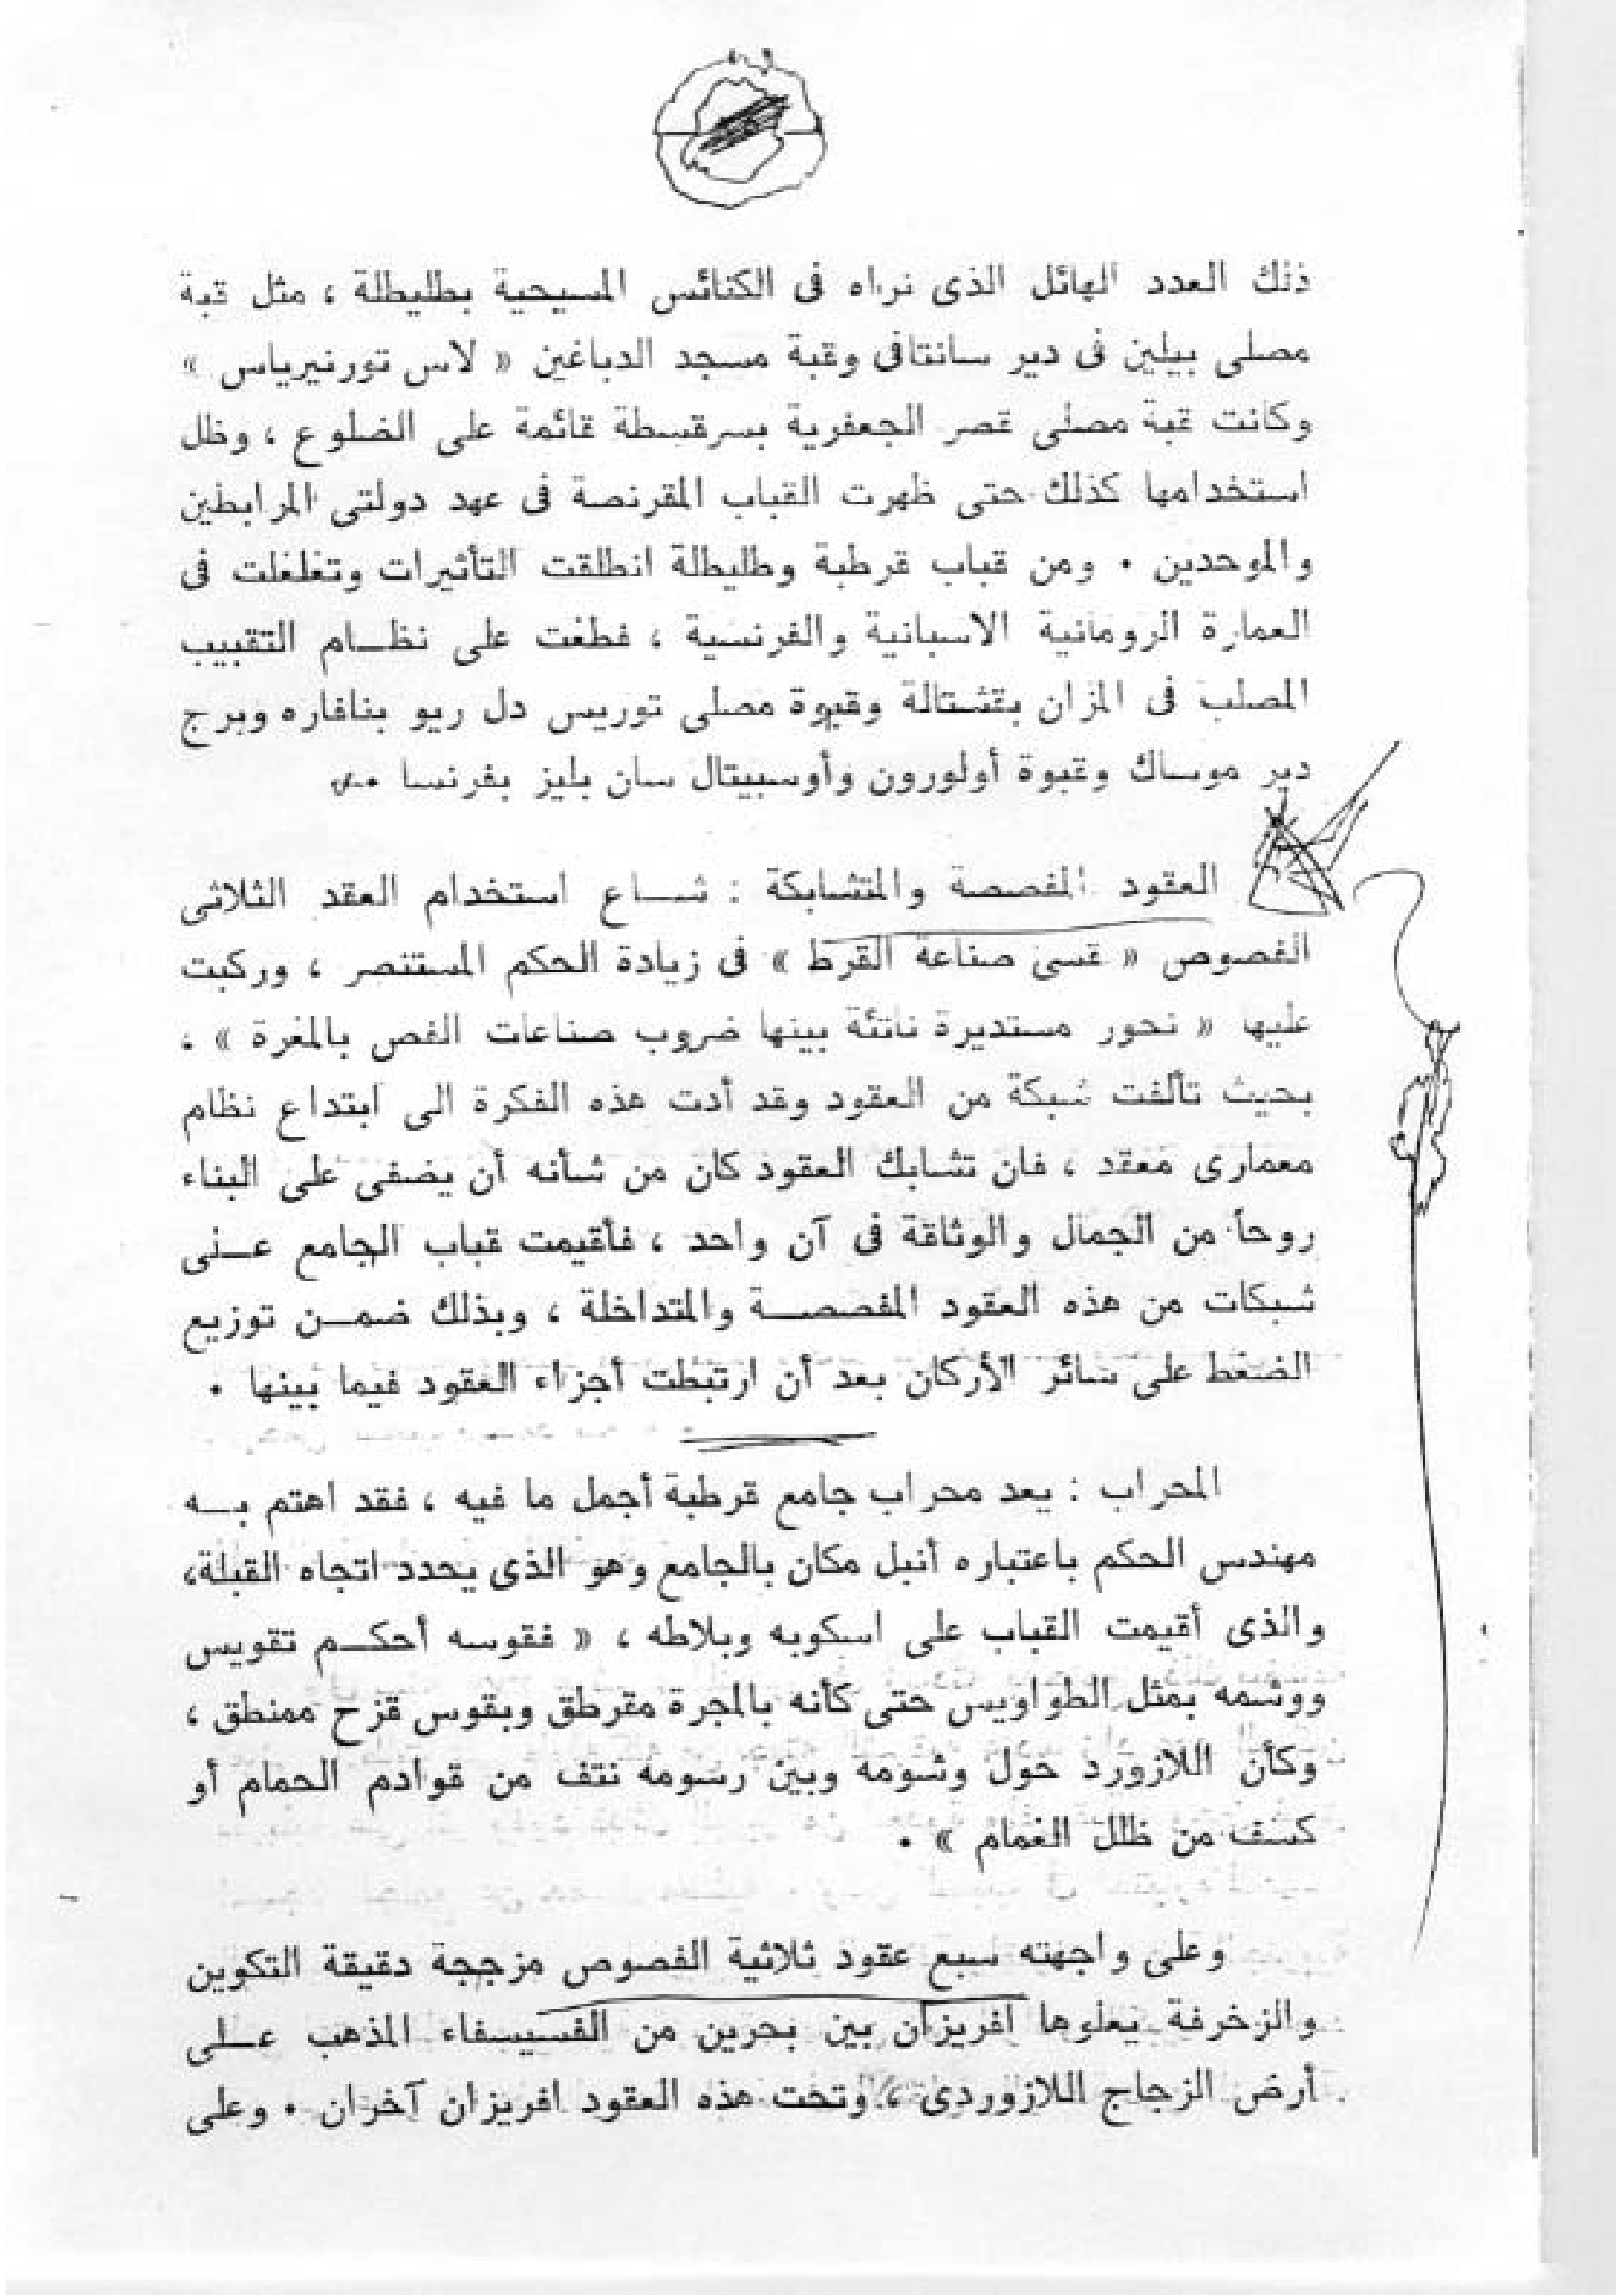 ذلك العدد الهائل الذى نراه فى الكنائس المسيحية بطليطلة ، مثل قبة
مصلى بيلين فى دير سانتافى وقبة مسجد الدباغين « لاس تورنيرياس »
وكانت قبة مصلى قصر الجعفرية بسرقسطة قائمة على الضلوع ، وظل
استخدامها كذلك حتى ظهرت القباب المقرنصة فى عهد دولتى المرابطين
والموحدين • ومن قباب قرطبة وطليطلة انطلقت التأثيرات وتغلغلت فى
العمارة الرومانية الاسبانية والفرنسية ، فطغت على نظــام التقبيب
المصلب فى المزان بقشتالة وقبوة مصلى توريس دل ريو بنافاره وبرج
دير موساك وقبوة أولورون وأوسبيتال سان بليز بفرنسا •
العقود المفصصة والمتشابكة : شــاع استخدام العقد الثلاثى
الفصوص « قسى صناعة القرط » فى زيادة الحكم المستنصر ، وركبت
عليها « نحور مستديرة ناتئة بينها ضروب صناعات الفص بالمغرة » ،
بحيث تألفت شبكة من العقود وقد أدت هذه الفكرة الى ابتداع نظام
معمارى معقد ، فان تشابك العقود كان من شأنه أن يضفى على البناء
روحاً من الجمال والوثاقة فى آن واحد ، فأقيمت قباب الجامع عــلى
شبكات من هذه العقود المفصصــة والمتداخلة ، وبذلك ضمــن توزيع
الضغط على سائر الأركان بعد أن ارتبطت أجزاء العقود فيما بينها •
المحراب : يعد محراب جامع قرطبة أجمل ما فيه ، فقد اهتم بــه
مهندس الحكم باعتباره أنبل مكان بالجامع وهو الذى يحدد اتجاه القبلة،
والذى أقيمت القباب على اسكوبه وبلاطه ، « فقوسه أحكــم تقويس
ووشمه بمثل الطواويس حتى كأنه بالمجرة مقرطق وبقوس قزح ممنطق ،
وكأن اللازورد حول وشومه وبين رسومه نتف من قوادم الحمام أو
كسف من ظلل الغمام » •
وعلى واجهته سبع عقود ثلاثية الفصوص مزججة دقيقة التكوين
والزخرفة يعلوها افريزان بين بحرين من الفسيسفاء المذهب عــلى
أرض الزجاج اللازوردى ، وتحت هذه العقود افريزان آخران • وعلى